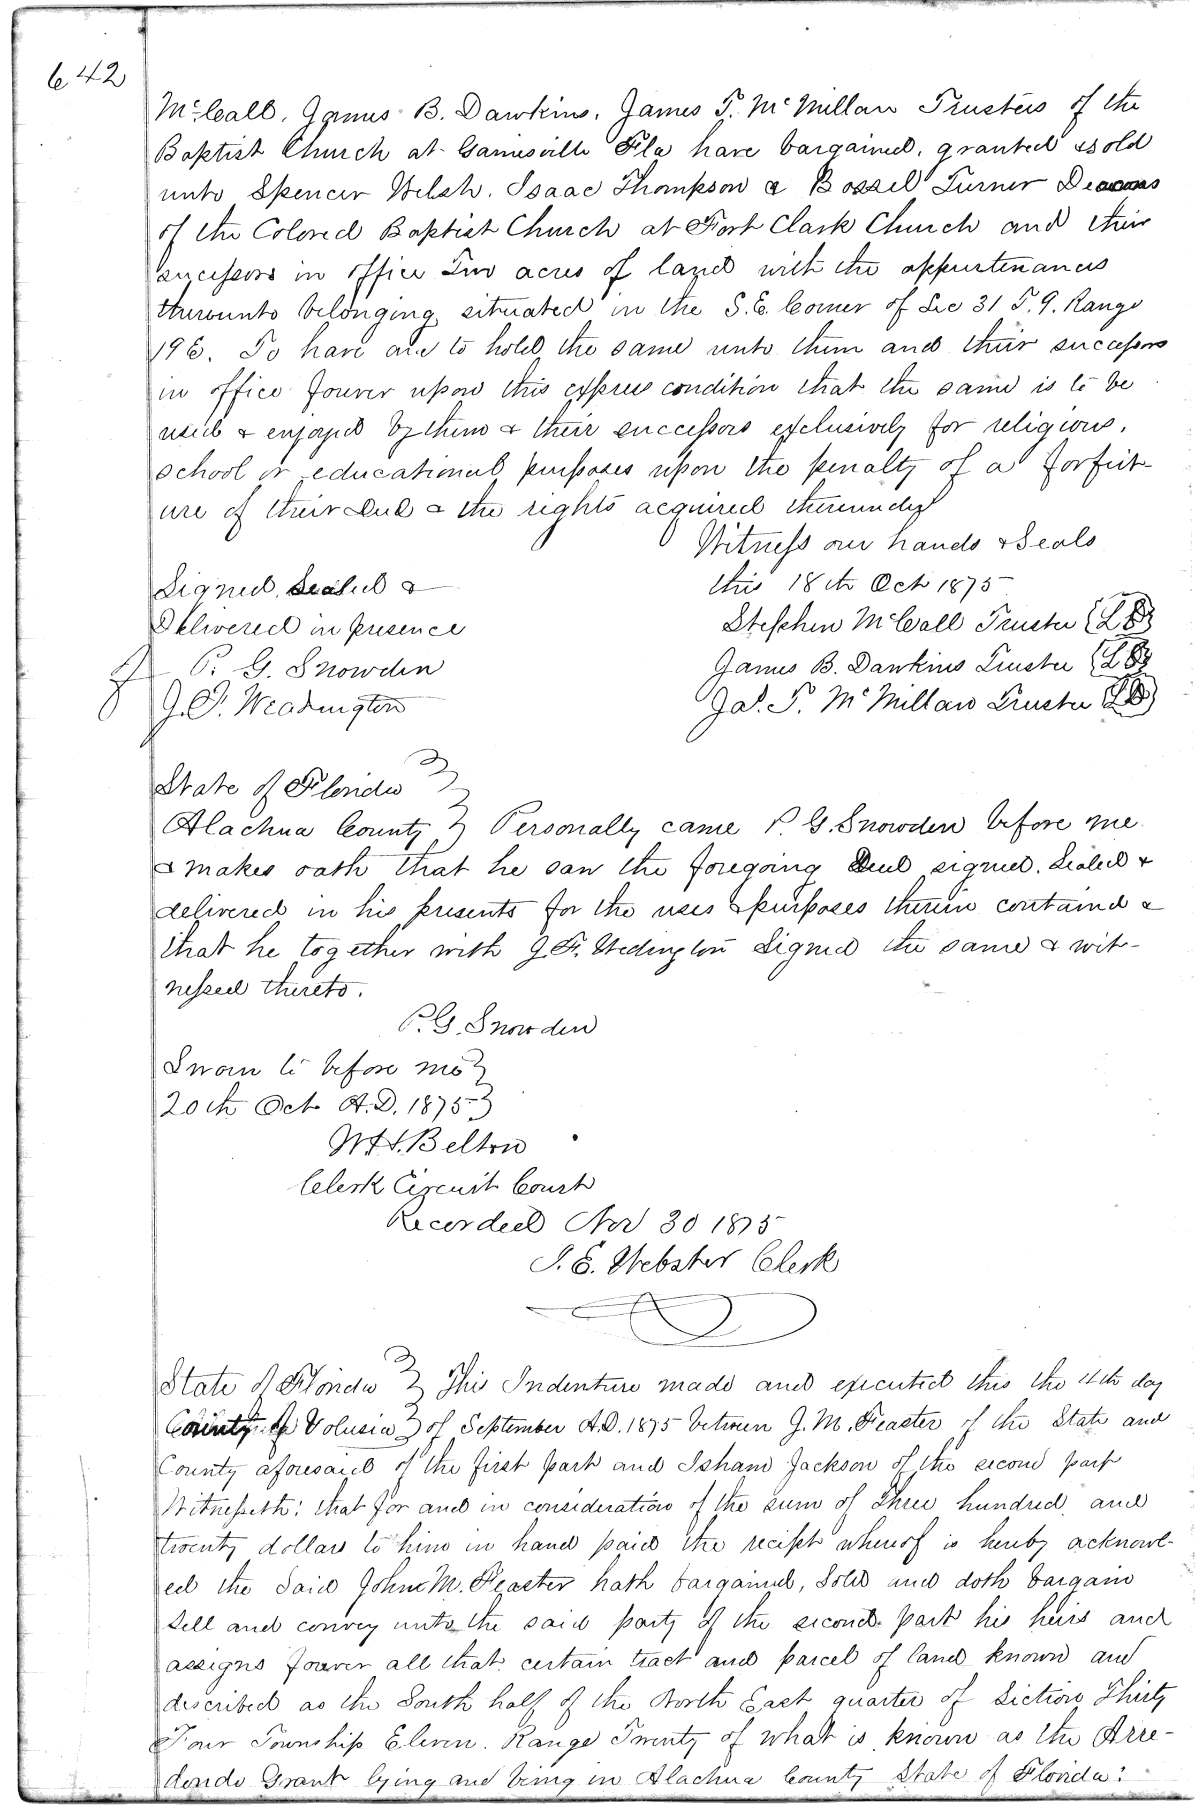 642
McCall, James B. Dawkins, James T. McMillan Trustees of the
Baptist Church at Gainesville Fla have bargained, granted & sold
unto Spencer Welsh, Isaac Thompson & Bossel Turner Deacons
of the Colored Baptist Church at Fort Clark Church and their
successors in office Two acres of land with the appurtenances
thereunto belonging situated in the S.E. Corner of Sec 31 T. 9. Range
19 E. To have and to hold the same unto them and their successors
in office forever upon this express condition that the same is to be
used & enjoyed by them & their successors exclusively for religious,
school or educational purposes upon the penalty of a forfeit-
ure of their Deed & the rights acquired thereunder
Witness our hands & Seals
this 18th Oct 1875
Signed, Sealed &
Delivered in presence
P. G. Snowden
J. F. Weadington
Stephen McCall Trustee {LS}
James B. Dawkins Trustee {LS}
Jas. T. McMillan Trustee {LS}
State of Florida }
Alachua County } Personally came P. G. Snowden before me
& makes oath that he saw the foregoing Deed signed, Sealed &
delivered in his presents for the uses & purposes therein contained &
that he together with J. F. Wedington Signed the same & wit-
nessed thereto.
P. G. Snowden
Sworn to before me }
20th Oct A.D. 1875 }
W. H. Belton
Clerk Circuit Court
Recorded Nov 30 1875
J. E. Webster Clerk
State of Florida } This Indenture made and executed this the 11th day
County of Volusia } of September A.D. 1875 between J. M. Feaster of the State and
County aforesaid of the first part and Isham Jackson of the second part
Witnesseth: that for and in consideration of the sum of Three hundred and
twenty dollars to him in hand paid the recipt whereof is hereby acknowl-
ed the said John M. Feaster hath bargained, Sold and doth bargain
Sell and convey unto the said party of the second part his heirs and
assigns forever all that certain tract and parcel of land known and
described as the South half of the North East quarter of Section Thirty
Four Township Eleven. Range Twenty of what is known as the Arre-
dondo Grant lying and being in Alachua County State of Florida: